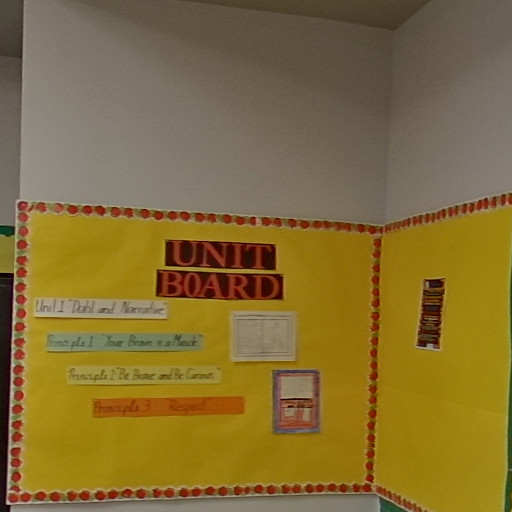 UNIT
BOARD
Unit 1 "Dahl and Narrative"
Principle 1 "Your Brain is a Muscle"
Principle 2 "Be Brave and Be Curious"
Principle 3 "Respect"